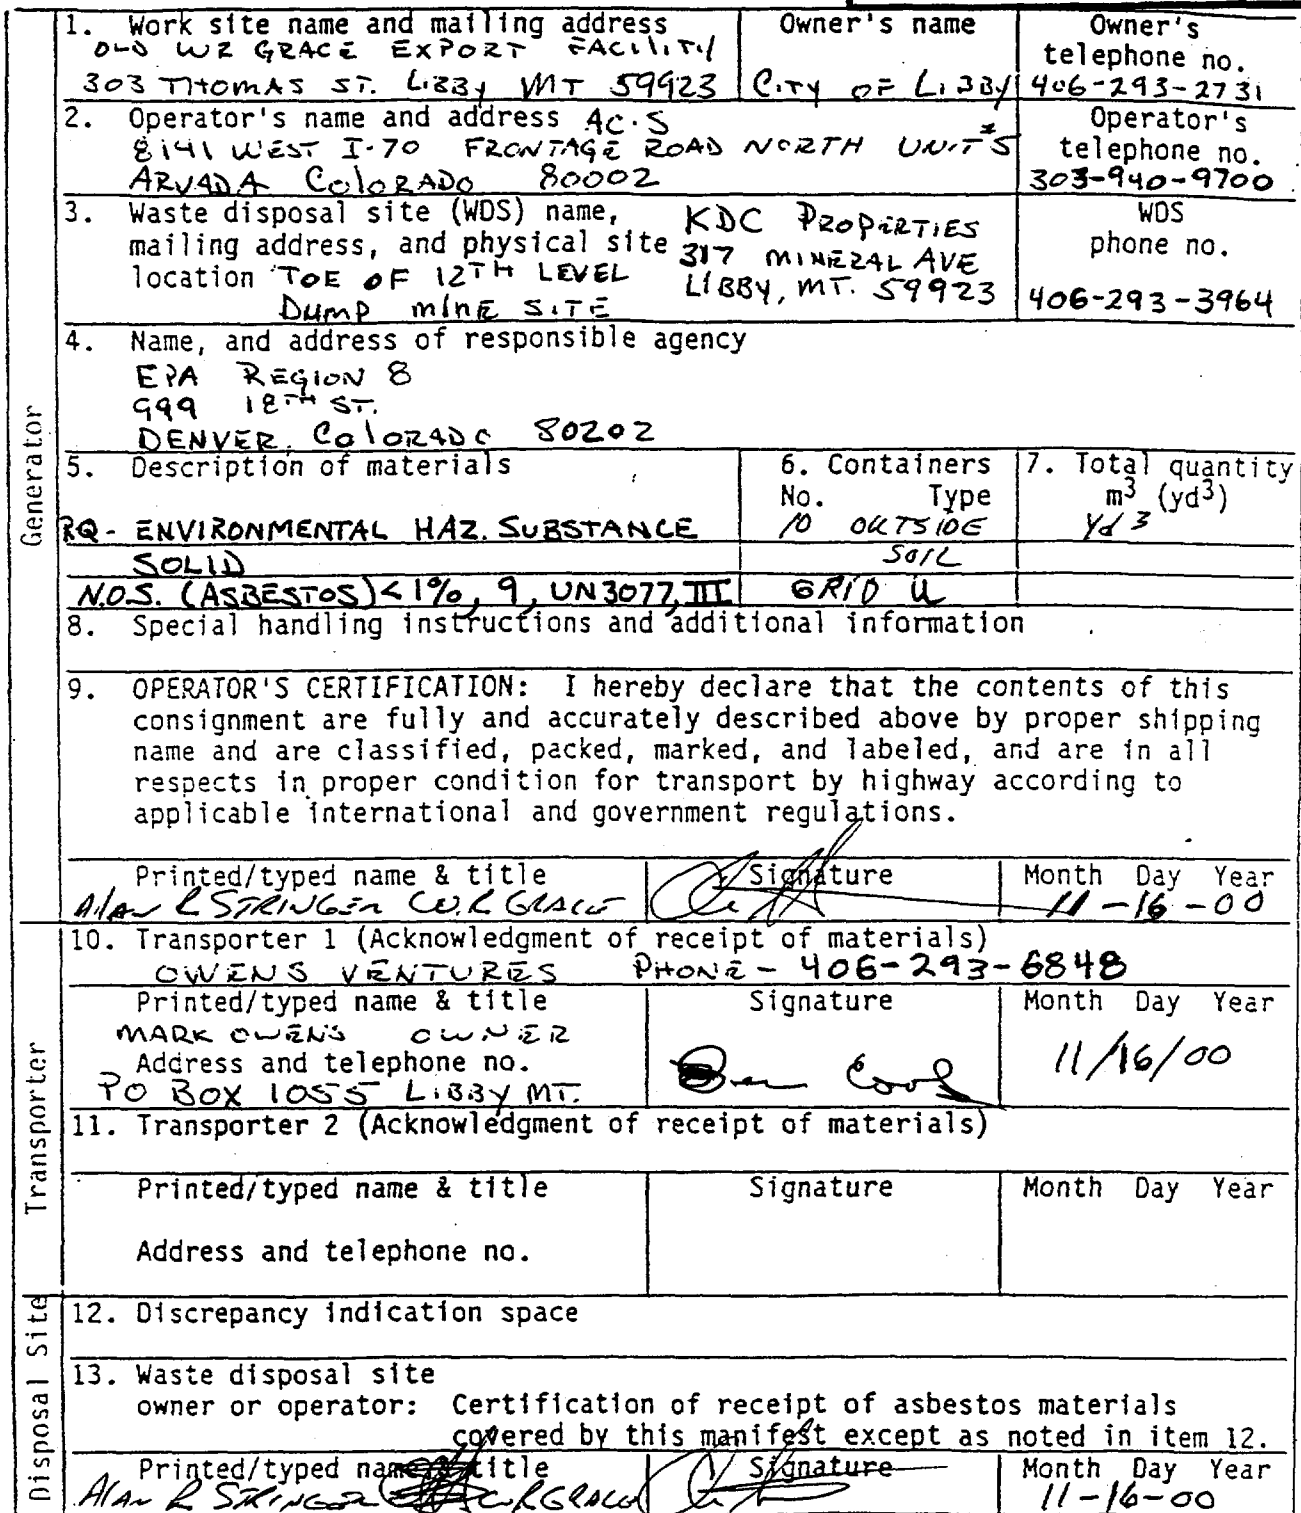 1. Work site name and mailing address
OLD WR GRACE EXPORT FACILITY
303 THOMAS ST. LIBBY MT 59923
Owner's name
CITY OF LIBBY
Owner's
telephone no.
406-293-2731
2. Operator's name and address AC.S
8141 WEST I-70 FRONTAGE ROAD NORTH UNIT #5
ARVADA COLORADO 80002
Operator's
telephone no.
303-940-9700
3. Waste disposal site (WDS) name,
mailing address, and physical site
location TOE OF 12TH LEVEL
DUMP MINE SITE
KDC PROPERTIES
317 MINERAL AVE
LIBBY, MT. 59923
WDS
phone no.
406-293-3964
4. Name, and address of responsible agency
EPA REGION 8
999 18TH ST.
DENVER, COLORADO 80202
Generator
5. Description of materials
RQ- ENVIRONMENTAL HAZ. SUBSTANCE
SOLID
N.O.S. (ASBESTOS) < 1%, 9, UN3077, III
6. Containers
No. Type
10 OUTSIDE
SOIL
GRID U
7. Total quantity
m3 (yd3)
Yd 3
8. Special handling instructions and additional information
9. OPERATOR'S CERTIFICATION: I hereby declare that the contents of this
consignment are fully and accurately described above by proper shipping
name and are classified, packed, marked, and labeled, and are in all
respects in proper condition for transport by highway according to
applicable international and government regulations.
Printed/typed name & title
Alan R STRINGER W.R GRACE
Signature
Month Day Year
11-16-00
Transporter
10. Transporter 1 (Acknowledgment of receipt of materials)
OWENS VENTURES PHONE - 406-293-6848
Printed/typed name & title
MARK OWENS OWNER
Address and telephone no.
PO BOX 1055 LIBBY MT.
Signature
Month Day Year
11/16/00
11. Transporter 2 (Acknowledgment of receipt of materials)
Printed/typed name & title
Address and telephone no.
Signature
Month Day Year
Disposal Site
12. Discrepancy indication space
13. Waste disposal site
owner or operator: Certification of receipt of asbestos materials
covered by this manifest except as noted in item 12.
Printed/typed name & title
Alan R STRINGER W.R GRACE
Signature
Month Day Year
11-16-00